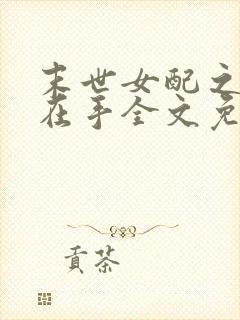 末世女配之
在手全文免
贡茶